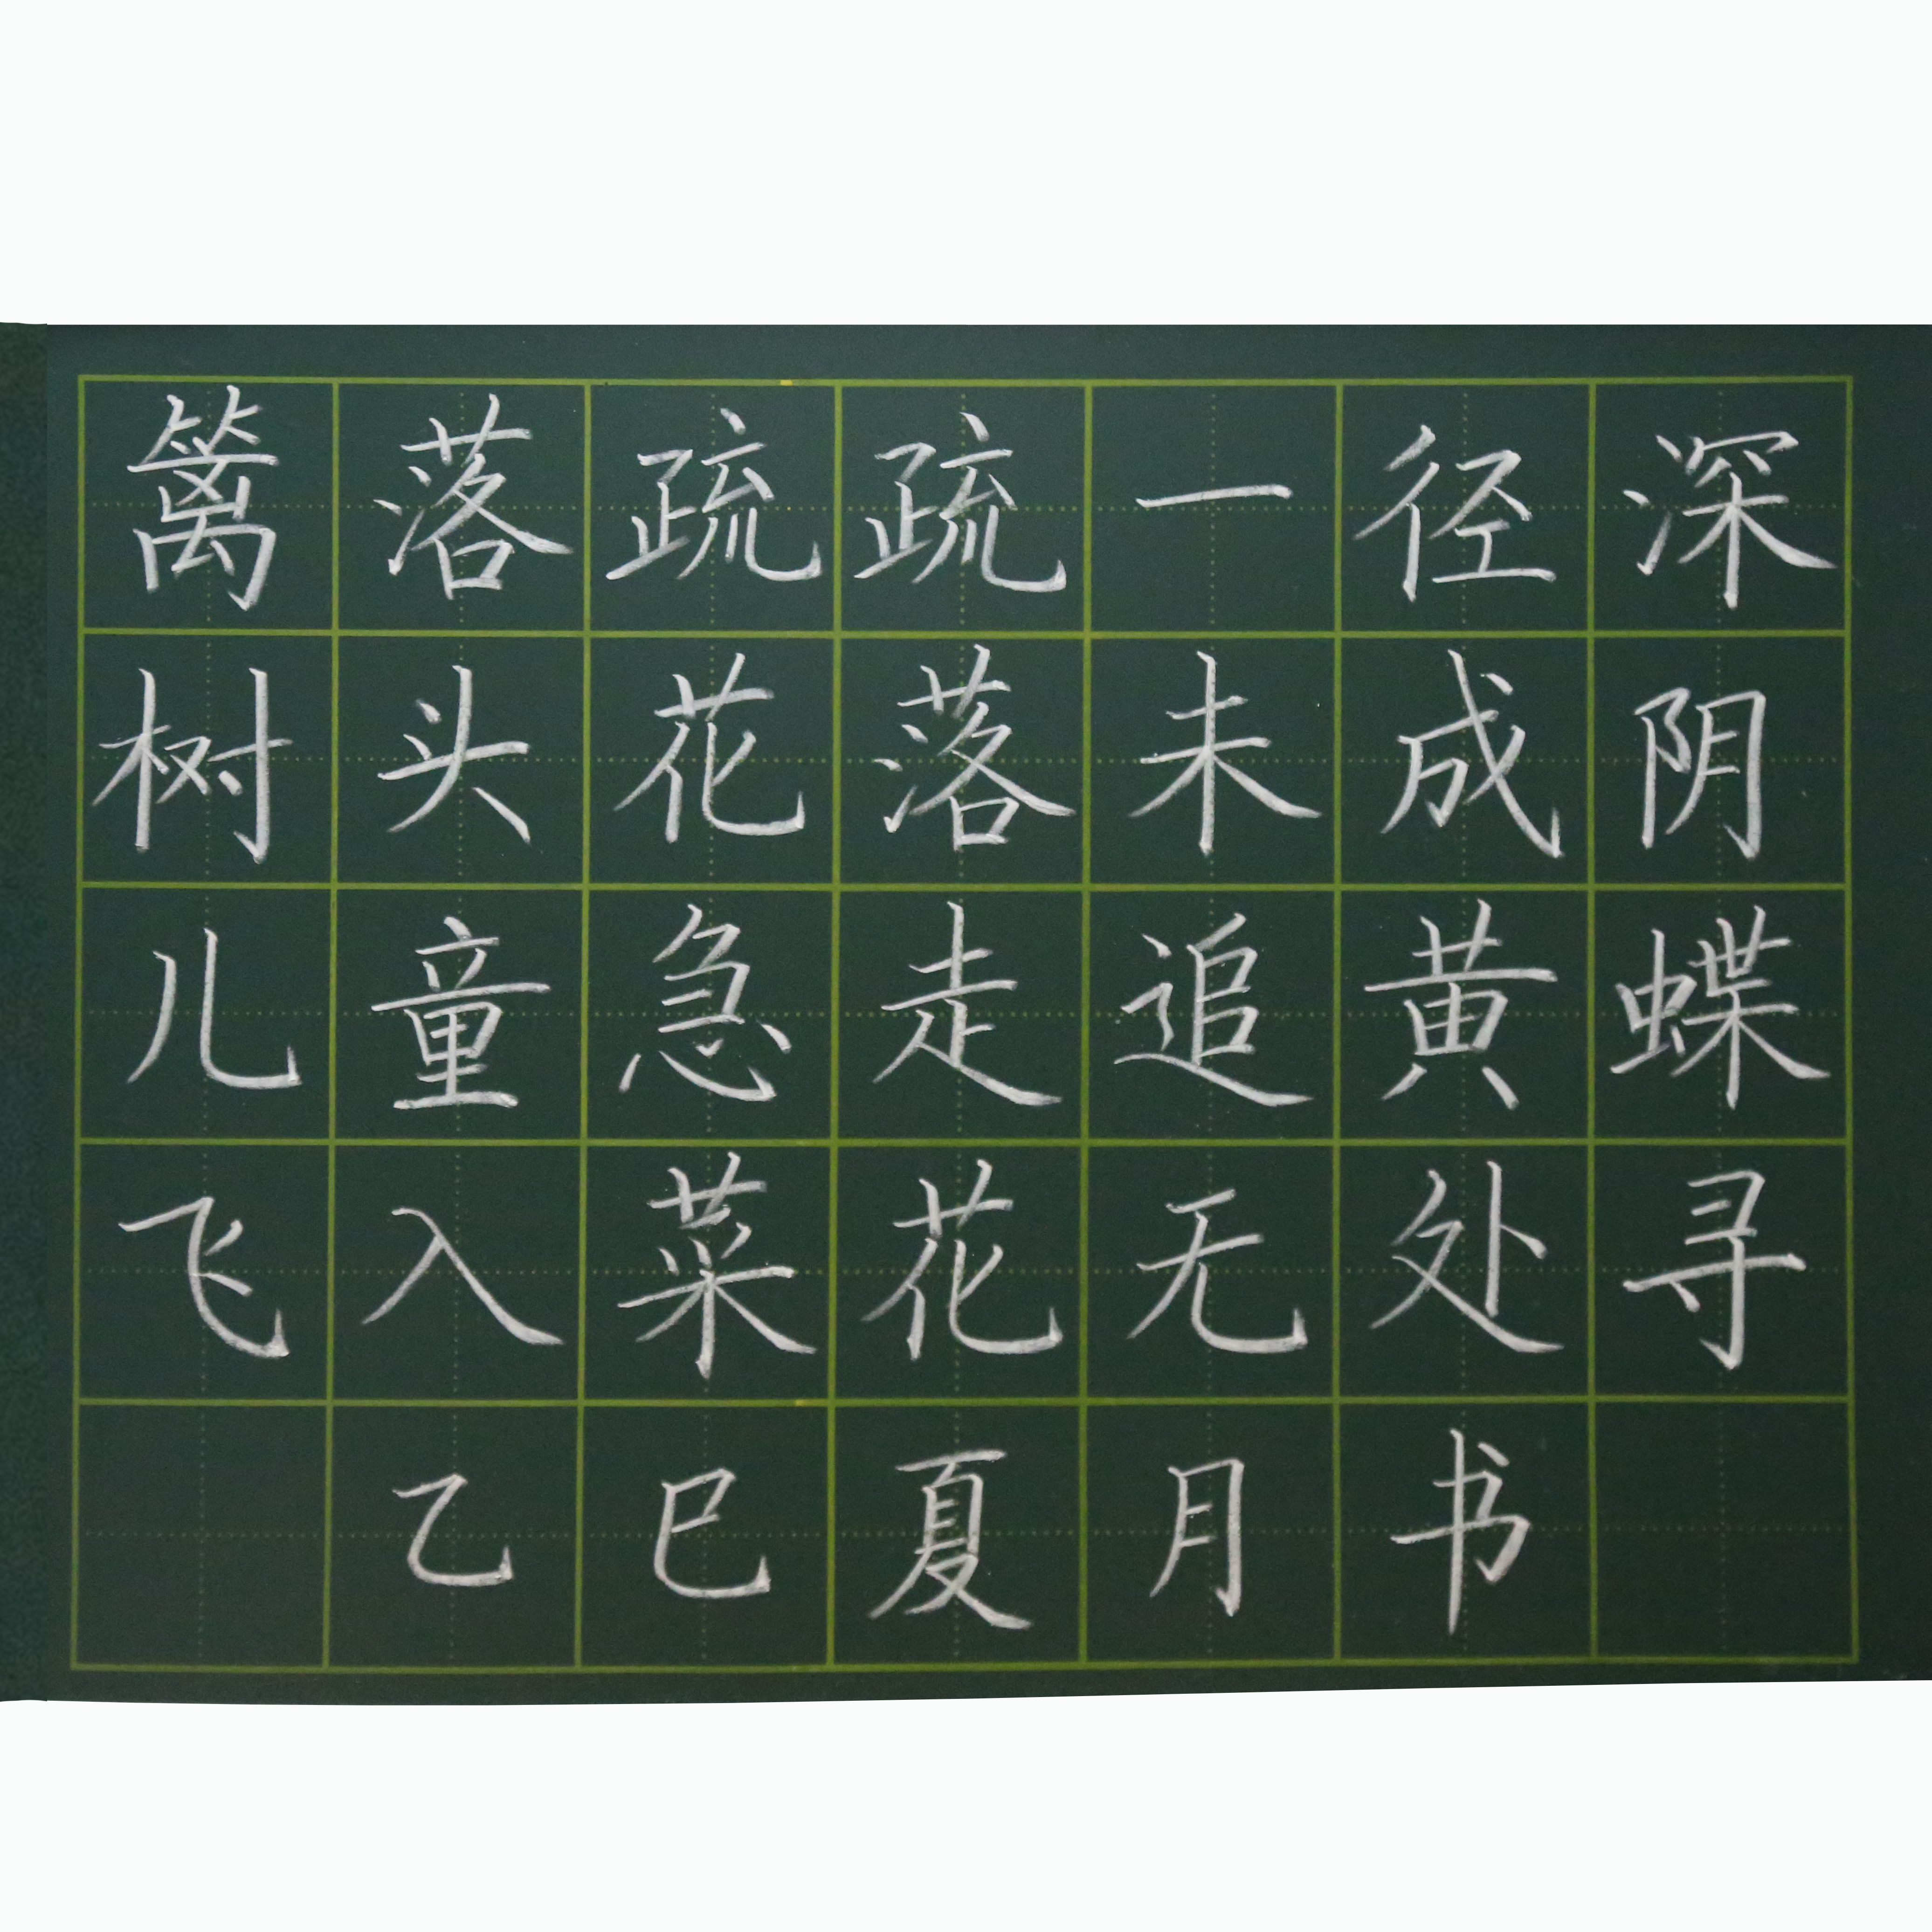 篱落疏疏一径深
树头花落未成阴
儿童急走追黄蝶
飞入菜花无处寻
乙巳夏月书